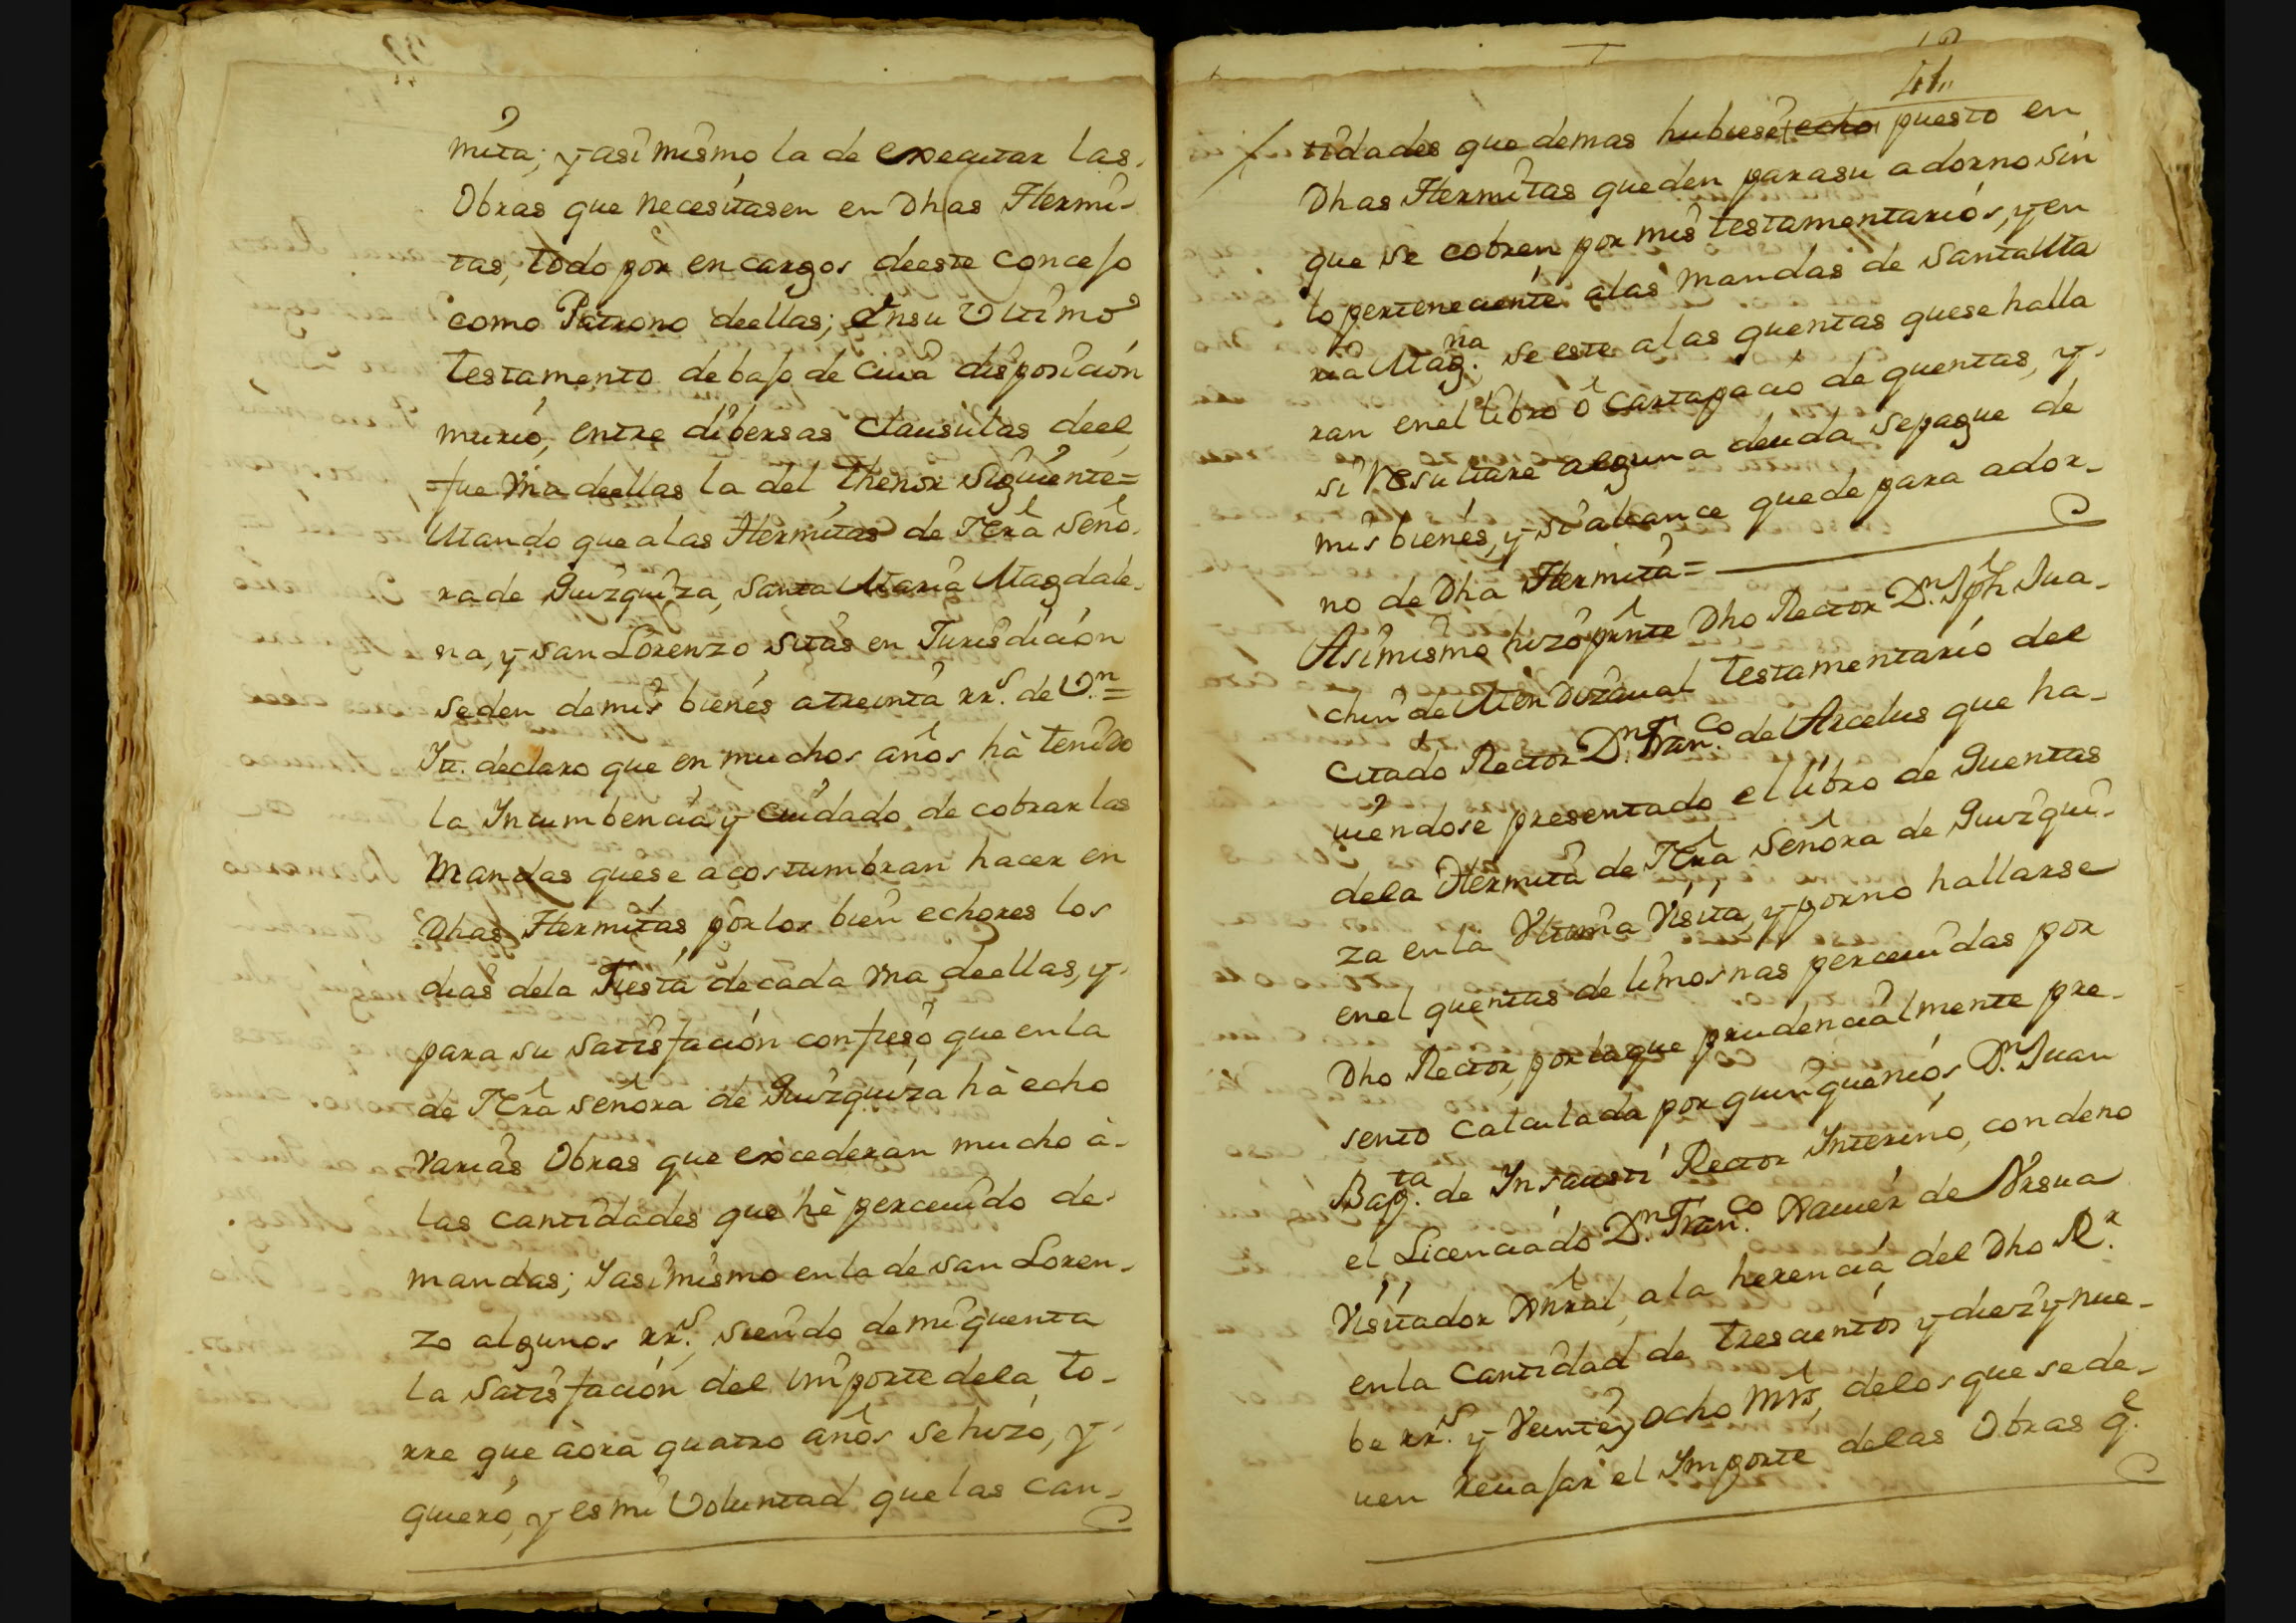 mita; y asi mismo la de executar las
Obras que necesitasen en Dhas Hermi-
tas, todo por encargos de este Concejo
como Patrono de ellas; En su Ultimo
testamento debajo de cuia disposicion
murió, entre dibersas Clausulas de el,
fue Vna de ellas la del thenor siguiente=
Mando que a las Hermitas de Nrâ Seño-
ra de Guizquiza, Santa Maria Magdale-
na, y San Lorenzo sitas en Jurisdicion
se den de mis bienes a treinta rr.s de V.n=
Itt. declaro que en muchos años hà tenido
la Incumbencia y Cuidado de cobrar las
Mandas que se acostumbran hacer en
Dhas Hermitas por los bien echores los
dias de la Fiesta de cada Vna de ellas, y
para su satisfacion confieso que en la
de Nrâ Señora de Guizquiza hà echo
Varias Obras que excederan mucho à
las cantidades que hè perceuido de
mandas; Y asi mismo en la de San Loren-
zo algunos rr.s, siendo de mi quenta
la satisfacion del importe de la to-
rre que àora quatro años se hizo, y
quiero, y es mi Voluntad que las can-
41,,
tidades que demas hubiese echo puesto en
Dhas Hermitas queden para su adorno sin
que se cobren por mis testamentarios, y en
lo perteneciente a las mandas de Santa Ma
ria Mag.na se este a las quentas que se halla
ran en el libro ò Cartapacio de quentas, y
si resultare alguna deuda se pague de
mis bienes, y si alcance quede para ador-
no de Dha Hermita=
Asimismo hizo prnte Dho Rector D.n Jph Jua-
chin de Mendizaual testamentario del
citado Rector D.n Fran.co de Arcelus que ha-
uiendose presentado el libro de Quentas
de la Hermita de Nrâ Señora de Guizqui-
za en la Vltima Visita, y por no hallarse
en el quentas de limosnas perceuidas por
Dho Rector, por la que prudencialmente pre-
sento calculada por quinquenios D.n Juan
Bap.ta de Insausti Rector Interino, condeno
el Licenciado D.n Fran.co Xauier de Vrsua
Visitador Xnral, a la herencia del Dho R.r
en la Cantidad de trescientos y diez y nue-
be rr.s y Veinte y ocho Mrs, de los que se de-
uen reuajar el Importe de las Obras q.e